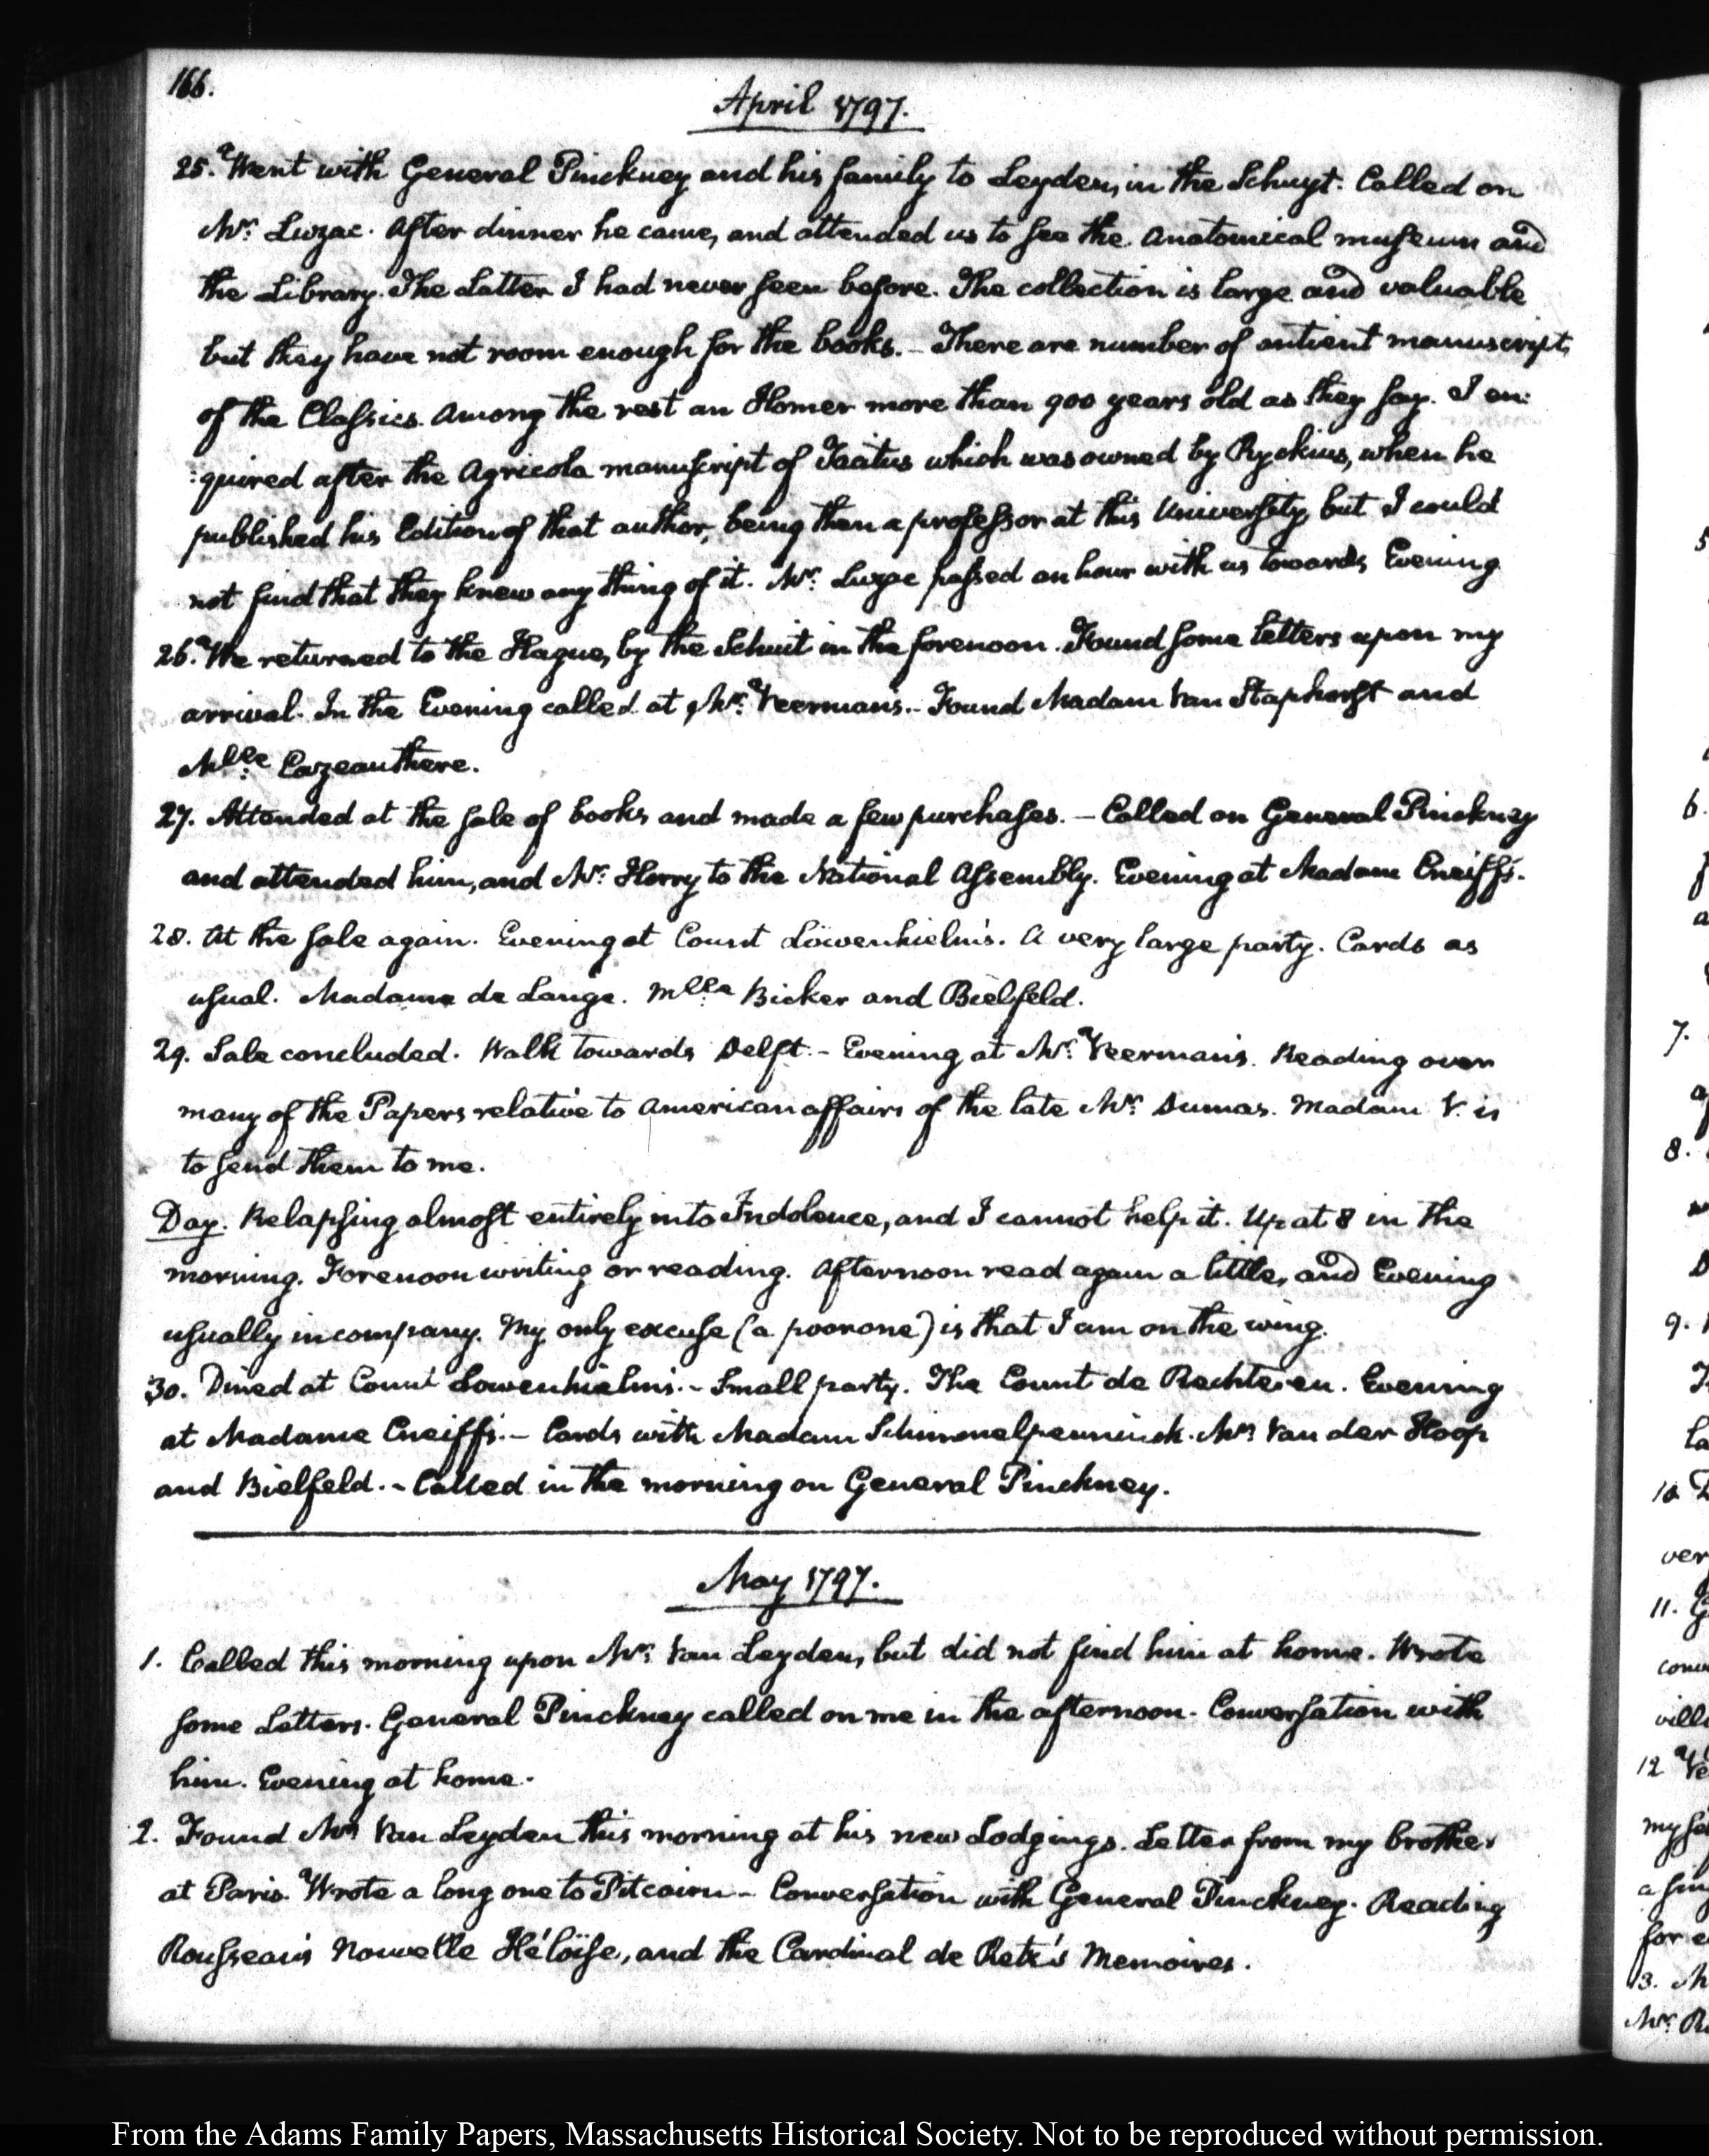 166.
April 1797.
25. Went with General Pinckney and his family to Leyden, in the Schuyt. Called on
Mr. Luzac. After dinner he came, and attended us to see the Anatomical museum and
the Library. The Latter I had never seen before. The collection is large and valuable
but they have not room enough for the books. – There are number of antient manuscripts
of the Classics. Among the rest an Homer more than 900 years old as they say. I en:
:quired after the Agricola manuscript of Tacitus which was owned by Ryckius, when he
published his Edition of that author, being then a professor at this University, but I could
not find that they knew any thing of it. Mr. Luzac passed an hour with us towards Evening
26. We returned to the Hague, by the Schuit in the forenoon. Found some letters upon my
arrival. In the Evening called at Mr. Veerman's. – Found Madam Van Staphorst and
Mlle. Cazeau there.
27. Attended at the sale of books and made a few purchases. – Called on General Pinckney
and attended him, and Mr. Horry to the National Assembly. Evening at Madame Cneiffs.
28. At the sale again. Evening at Count Löwenhielm's. A very large party. Cards as
usual. Madame de Lange. Mlle Bicker and Bielfeld.
29. Sale concluded. Walk towards Delft. – Evening at Mr. Veerman's. Reading over
many of the Papers relative to American affairs of the late Mr. Dumas. Madam V. is
to send them to me.
Day. Relapsing almost entirely into Indolence, and I cannot help it. Up at 8 in the
morning. Forenoon writing or reading. Afternoon read again a little, and Evening
usually in company. My only excuse (a poor one) is that I am on the wing.
30. Dined at Count Löwenhielm's. – Small party. The Count de Rechteren. Evening
at Madame Cneiffs. – Cards with Madam Schimmelpenninck. Mr. Van der Hoop
and Bielfeld. – Called in the morning on General Pinckney.
May 1797.
1. Called this morning upon Mr. Van Leyden, but did not find him at home. Wrote
some Letters. General Pinckney called on me in the afternoon. Conversation with
him. Evening at home.
2. Found Mr. Van Leyden this morning at his new Lodgings. Letter from my brother
at Paris. Wrote a long one to Pitcairn – Conversation with General Pinckney. Reading
Rousseau's Nouvelle Héloïse, and the Cardinal de Retz's Memoires.
From the Adams Family Papers, Massachusetts Historical Society. Not to be reproduced without permission.